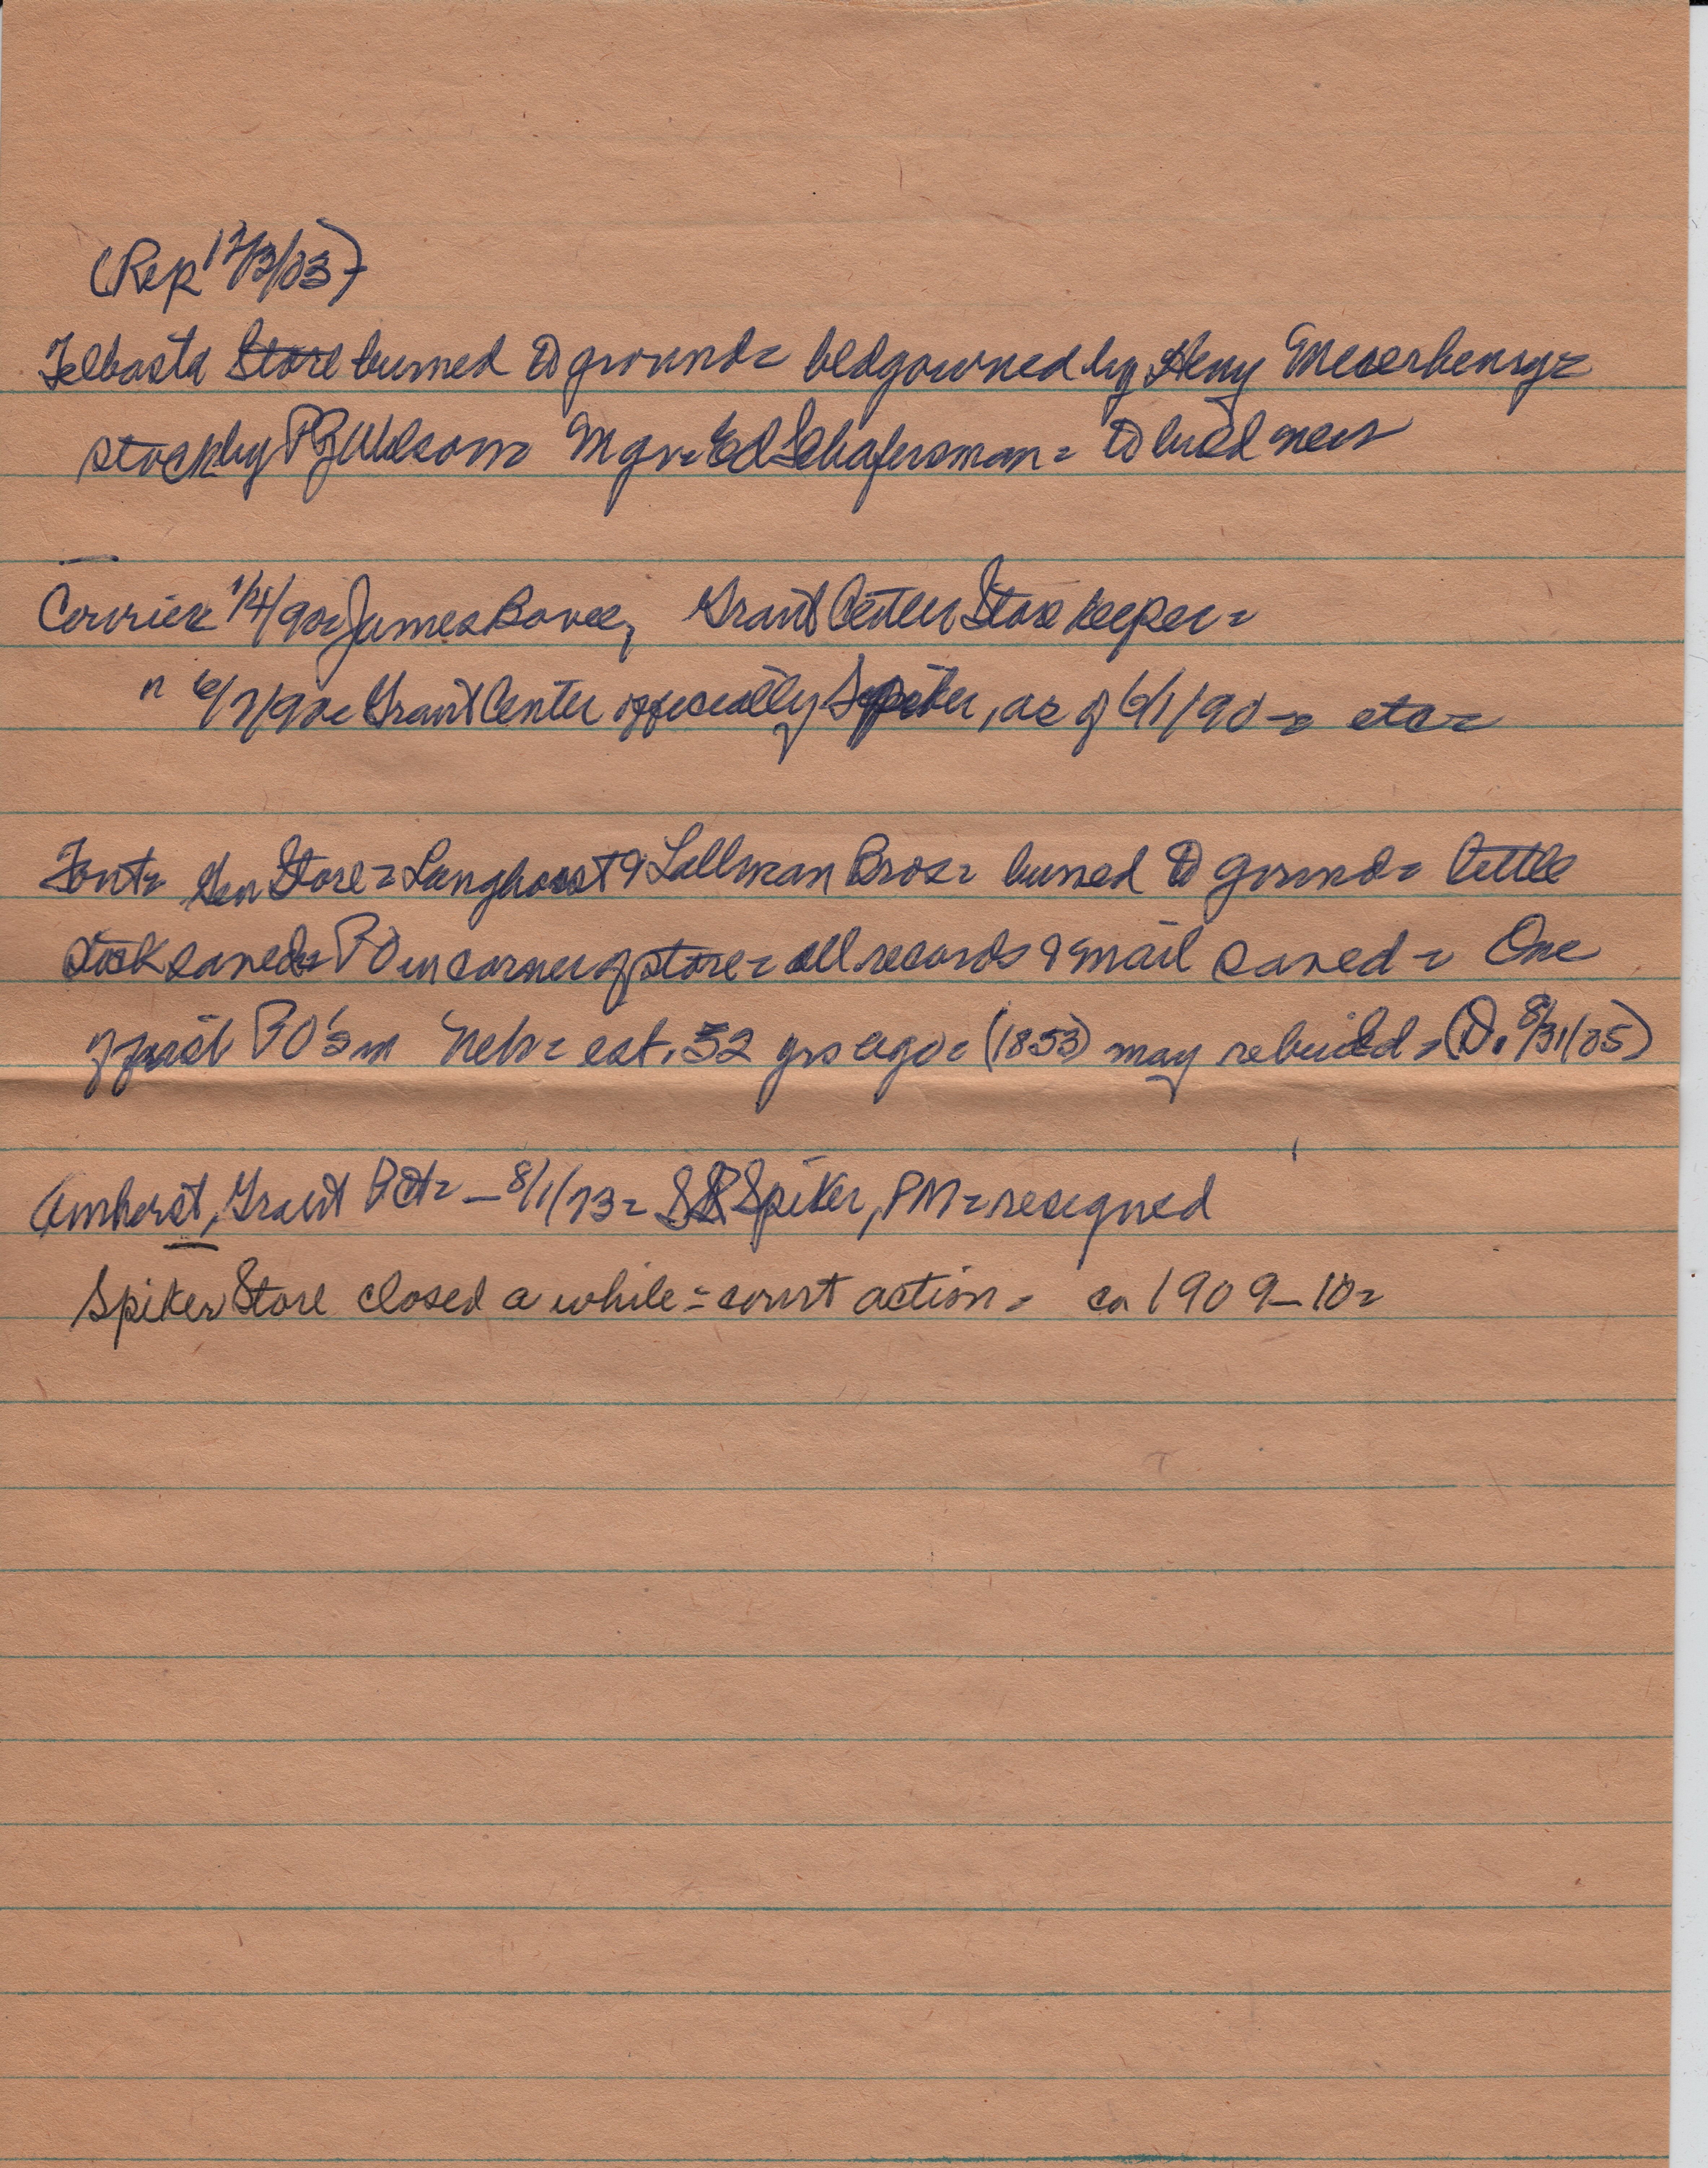 (Rep 12/3/03)
Telbasta Store burned to ground= bldg owned by Heny Meierhenry=
stock by PZ Wilson= Mgr= Ed Schafersman= to build new
Courier 1/4/90= James Bovee, Grant Center Store keeper=
" 6/7/90= Grant Center officially Spiker, as of 6/1/90-= etc=
Font= Gen Store= Langhorst & Lallman Bros= burned to ground= little
stock saved= PO in corner of store= all records & mail saved= One
of first PO's in Neb= est. 52 yrs ago= (1853) may rebuild= (D. 8/31/05)
Amherst, Grant Pct= - 8/1/73= SR Spiker, PM= resigned
Spiker Store closed a while= court action= ca 1909-10=